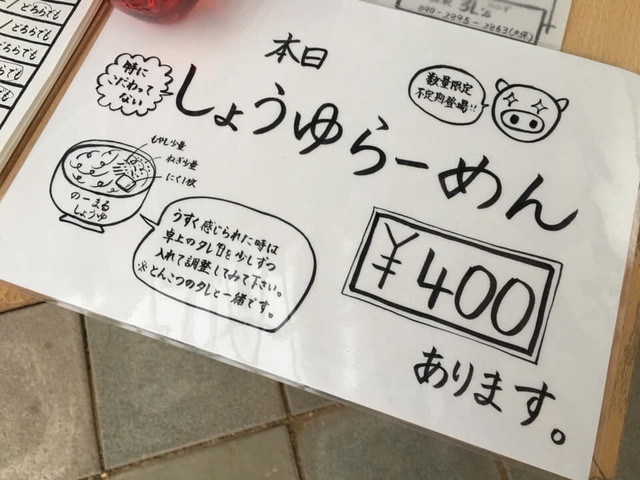 どちらでも
どちらでも
どちらでも
どちらでも
本日
特に
こだわって
ない
しょうゆらーめん
数量限定
不定期登場!!
もやし少量
ねぎ少量
にく1枚
のーまる
しょうゆ
うすく感じられた時は
卓上のタレを少しずつ
入れて調整してみて下さい。
※とんこつのタレと一緒です。
¥400
あります。